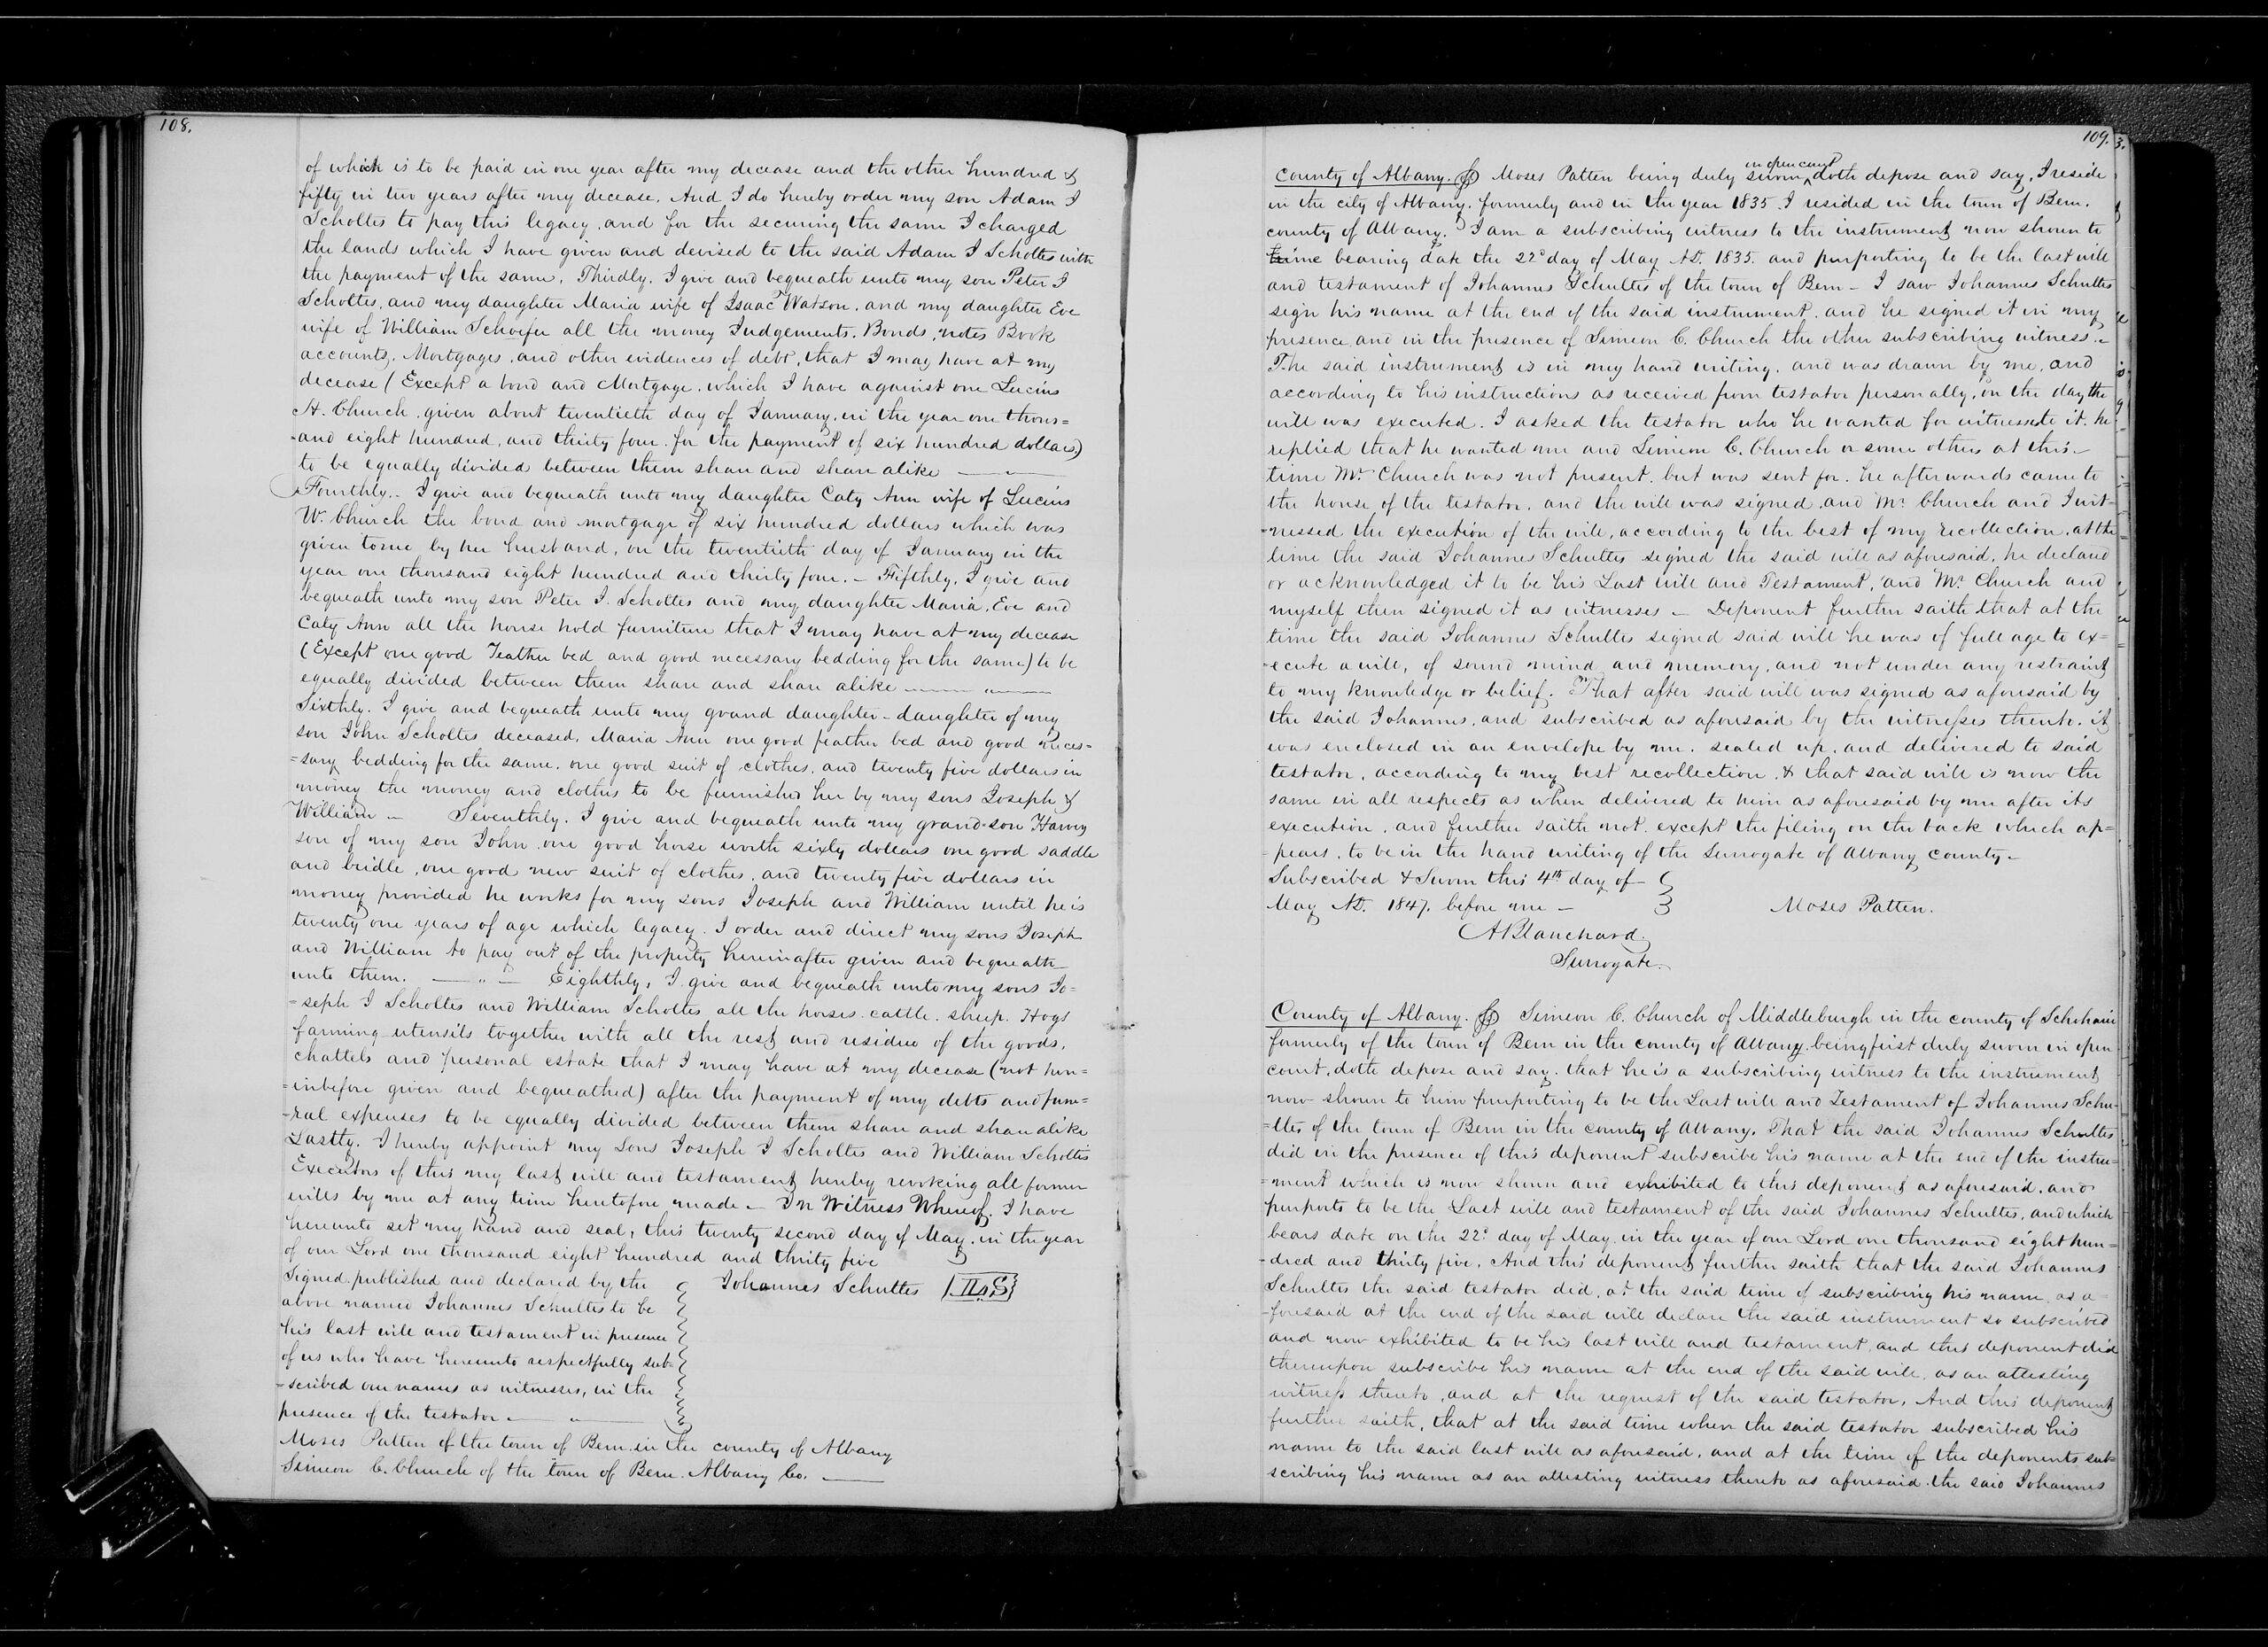 108.
of which is to be paid in one year after my decease and the other hundred &
fifty in two years after my decease. And I do hereby order my son Adam I
Scholtes to pay this legacy, and for the securing the same I charged
the lands which I have given and devised to the said Adam I Scholtes with
the payment of the same. Thirdly. I give and bequeath unto my son Peter I
Scholtes, and my daughter Maria wife of Isaac Watson, and my daughter Eve
wife of William Schoefer all the money Judgements, Bonds, notes Book
accounts, Mortgages, and other evidences of debt, that I may have at my
decease (Except a bond and Mortgage, which I have against one Lucius
H. Church, given about twentieth day of January, in the year one thous=
-and eight hundred, and thirty four. for the payment of six hundred dollars)
to be equally divided between them share and share alike
Fourthly. I give and bequeath unto my daughter Caty Ann wife of Lucius
W. Church the bond and mortgage of six hundred dollars which was
given to me by her husband, on the twentieth day of January in the
year one thousand eight hundred and thirty four. — Fifthly, I give and
bequeath unto my son Peter I. Scholtes and my daughter Maria, Eve and
Caty Ann all the house hold furniture that I may have at my decease
(Except one good Feather bed and good necessary bedding for the same) to be
equally divided between them share and share alike
Sixthly. I give and bequeath unto my grand daughter - daughter of my
son John Scholtes deceased, Maria Ann one good feather bed and good neces=
=sary bedding for the same, one good suit of clothes, and twenty five dollars in
money the money and clothes to be furnished her by my sons Joseph &
William — Seventhly. I give and bequeath unto my grand-son Harvey
son of my son John one good horse worth sixty dollars one good saddle
and bridle, one good new suit of clothes, and twenty five dollars in
money provided he works for my sons Joseph and William until he is
twenty one years of age which legacy. I order and direct my sons Joseph
and William to pay out of the property hereinafter given and bequeath
unto them. — " — Eighthly, I give and bequeath unto my sons Jo=
=seph I Scholtes and William Scholtes all the horses. cattle. sheep. Hogs
farming utensils together with all the rest and residue of the goods,
chattels and personal estate that I may have at my decease (not her=
=inbefore given and bequeathed) after the payment of my debts and fune=
-ral expenses to be equally divided between them share and share alike
Lastly. I hereby appoint my Sons Joseph I Scholtes and William Scholtes
Executors of this my last will and testament hereby revoking all former
wills by me at any time heretofore made — In Witness Whereof. I have
hereunto set my hand and seal, this twenty second day of May, in the year
of our Lord one thousand eight hundred and thirty five
Signed published and declared by the
above named Johannes Schultes to be
his last will and testament in presence
of us who have hereunto respectfully sub-
-scribed our names as witnesses, in the
presence of the testator
Johannes Schultes L.S.
Moses Patten of the town of Bern in the county of Albany
Simeon C. Church of the town of Bern. Albany Co.
109.
3.
County of Albany. ss Moses Patten being duly sworn in open court doth depose and say, I reside
in the city of Albany. formerly and in the year 1835 I resided in the town of Bern.
county of Albany. I am a subscribing witness to the instrument now shown to
me bearing date the 22d day of May AD. 1835. and purporting to be the last will
and testament of Johannes Schultes of the town of Bern — I saw Johannes Schultes
sign his name at the end of the said instrument, and he signed it in my
presence and in the presence of Simeon C. Church the other subscribing witness.
The said instrument is in my hand writing, and was drawn by me, and
according to his instructions as received from testator personally, on the day the
will was executed. I asked the testator who he wanted for witnesseto it. he
replied that he wanted me and Simeon C. Church or some others at this
time Mr Church was not present, but was sent for. he afterwards came to
the house of the testator, and the will was signed, and Mr Church and I wit-
-nessed the execution of the will, according to the best of my recollection, at the
time the said Johannes Schultes signed the said will as aforesaid, he declared
or acknowledged it to be his Last will and Testament, and Mr Church and
myself then signed it as witnesses — Deponent further saith that at the
time the said Johannes Schultes signed said will he was of full age to ex=
-ecute a will, of sound mind and memory, and not under any restraint
to my knowledge or belief. That after said will was signed as aforesaid by
the said Johannes, and subscribed as aforesaid by the witnesses thereto. it
was enclosed in an envelope by me. sealed up, and delivered to said
testator, according to my best recollection, & that said will is now the
same in all respects as when delivered to him as aforesaid by me after its
execution, and further saith not. except the filing on the back which ap=
=pears, to be in the hand writing of the Surrogate of Albany county.
Subscribed & Sworn this 4th day of
May AD. 1847. before me —
Moses Patten.
A Blanchard.
Surrogate.
County of Albany. ss Simeon C. Church of Middleburgh in the county of Schoharie
formerly of the town of Bern in the county of Albany being first duly sworn in open
court, doth depose and say. that he is a subscribing witness to the instrument
now shown to him purporting to be the Last will and Testament of Johannes Schu-
=ltes of the town of Bern in the county of Albany. That the said Johannes Schultes
did in the presence of this deponent subscribe his name at the end of the instru=
=ment which is now shown and exhibited to this deponent as aforesaid, and
purports to be the Last will and testament of the said Johannes Schultes, and which
bears date on the 22d day of May in the year of our Lord one thousand eight hun=
-dred and thirty five. And this deponent further saith that the said Johannes
Schultes the said testator did, at the said time of subscribing his name as a-
-foresaid at the end of the said will declare the said instrument so subscribed
and now exhibited to be his last will and testament, and this deponent did
thereupon subscribe his name at the end of the said will, as an attesting
witness thereto, and at the request of the said testator. And this deponent
further saith, that at the said time when the said testator subscribed his
name to the said last will as aforesaid, and at the time of the deponents sub=
scribing his name as an attesting witness thereto as aforesaid the said Johannes